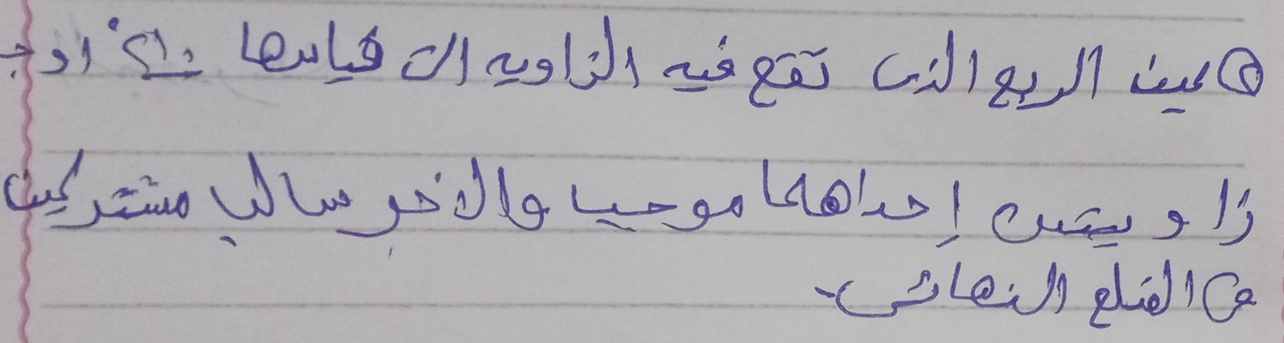 عين الربع الذى تقع فيه الزاويه الت قياسها ° اوجـ
زاويتين إحداهما موجبا والاخر سالبا مشتركين
فى الضلع النهائى.